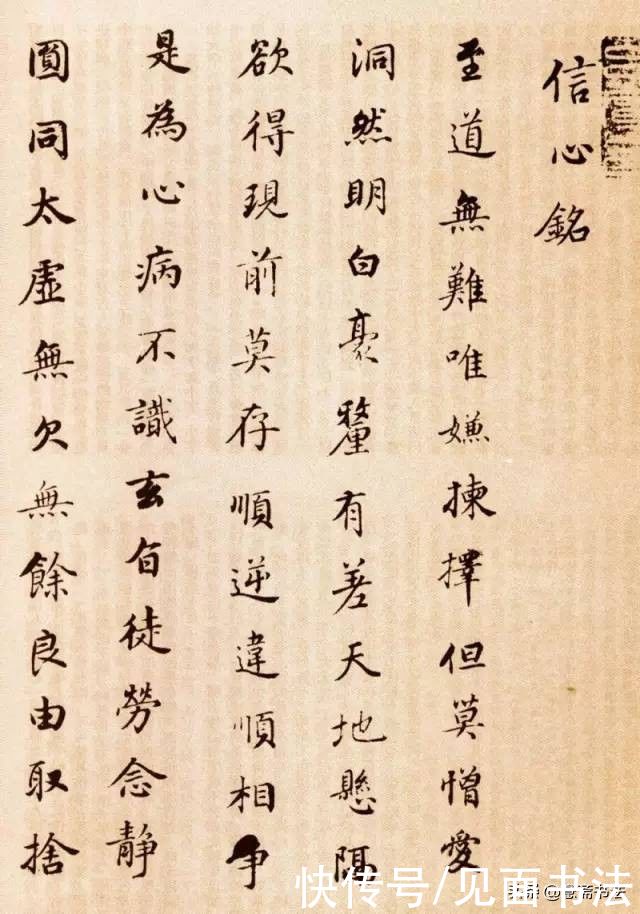 信心銘
至道無難唯嫌揀擇但莫憎愛
洞然明白豪釐有差天地懸隔
欲得現前莫存順逆違順相争
是為心病不識玄旨徒勞念静
圓同太虛無欠無餘良由取捨
快传号/见面书法
斋书法